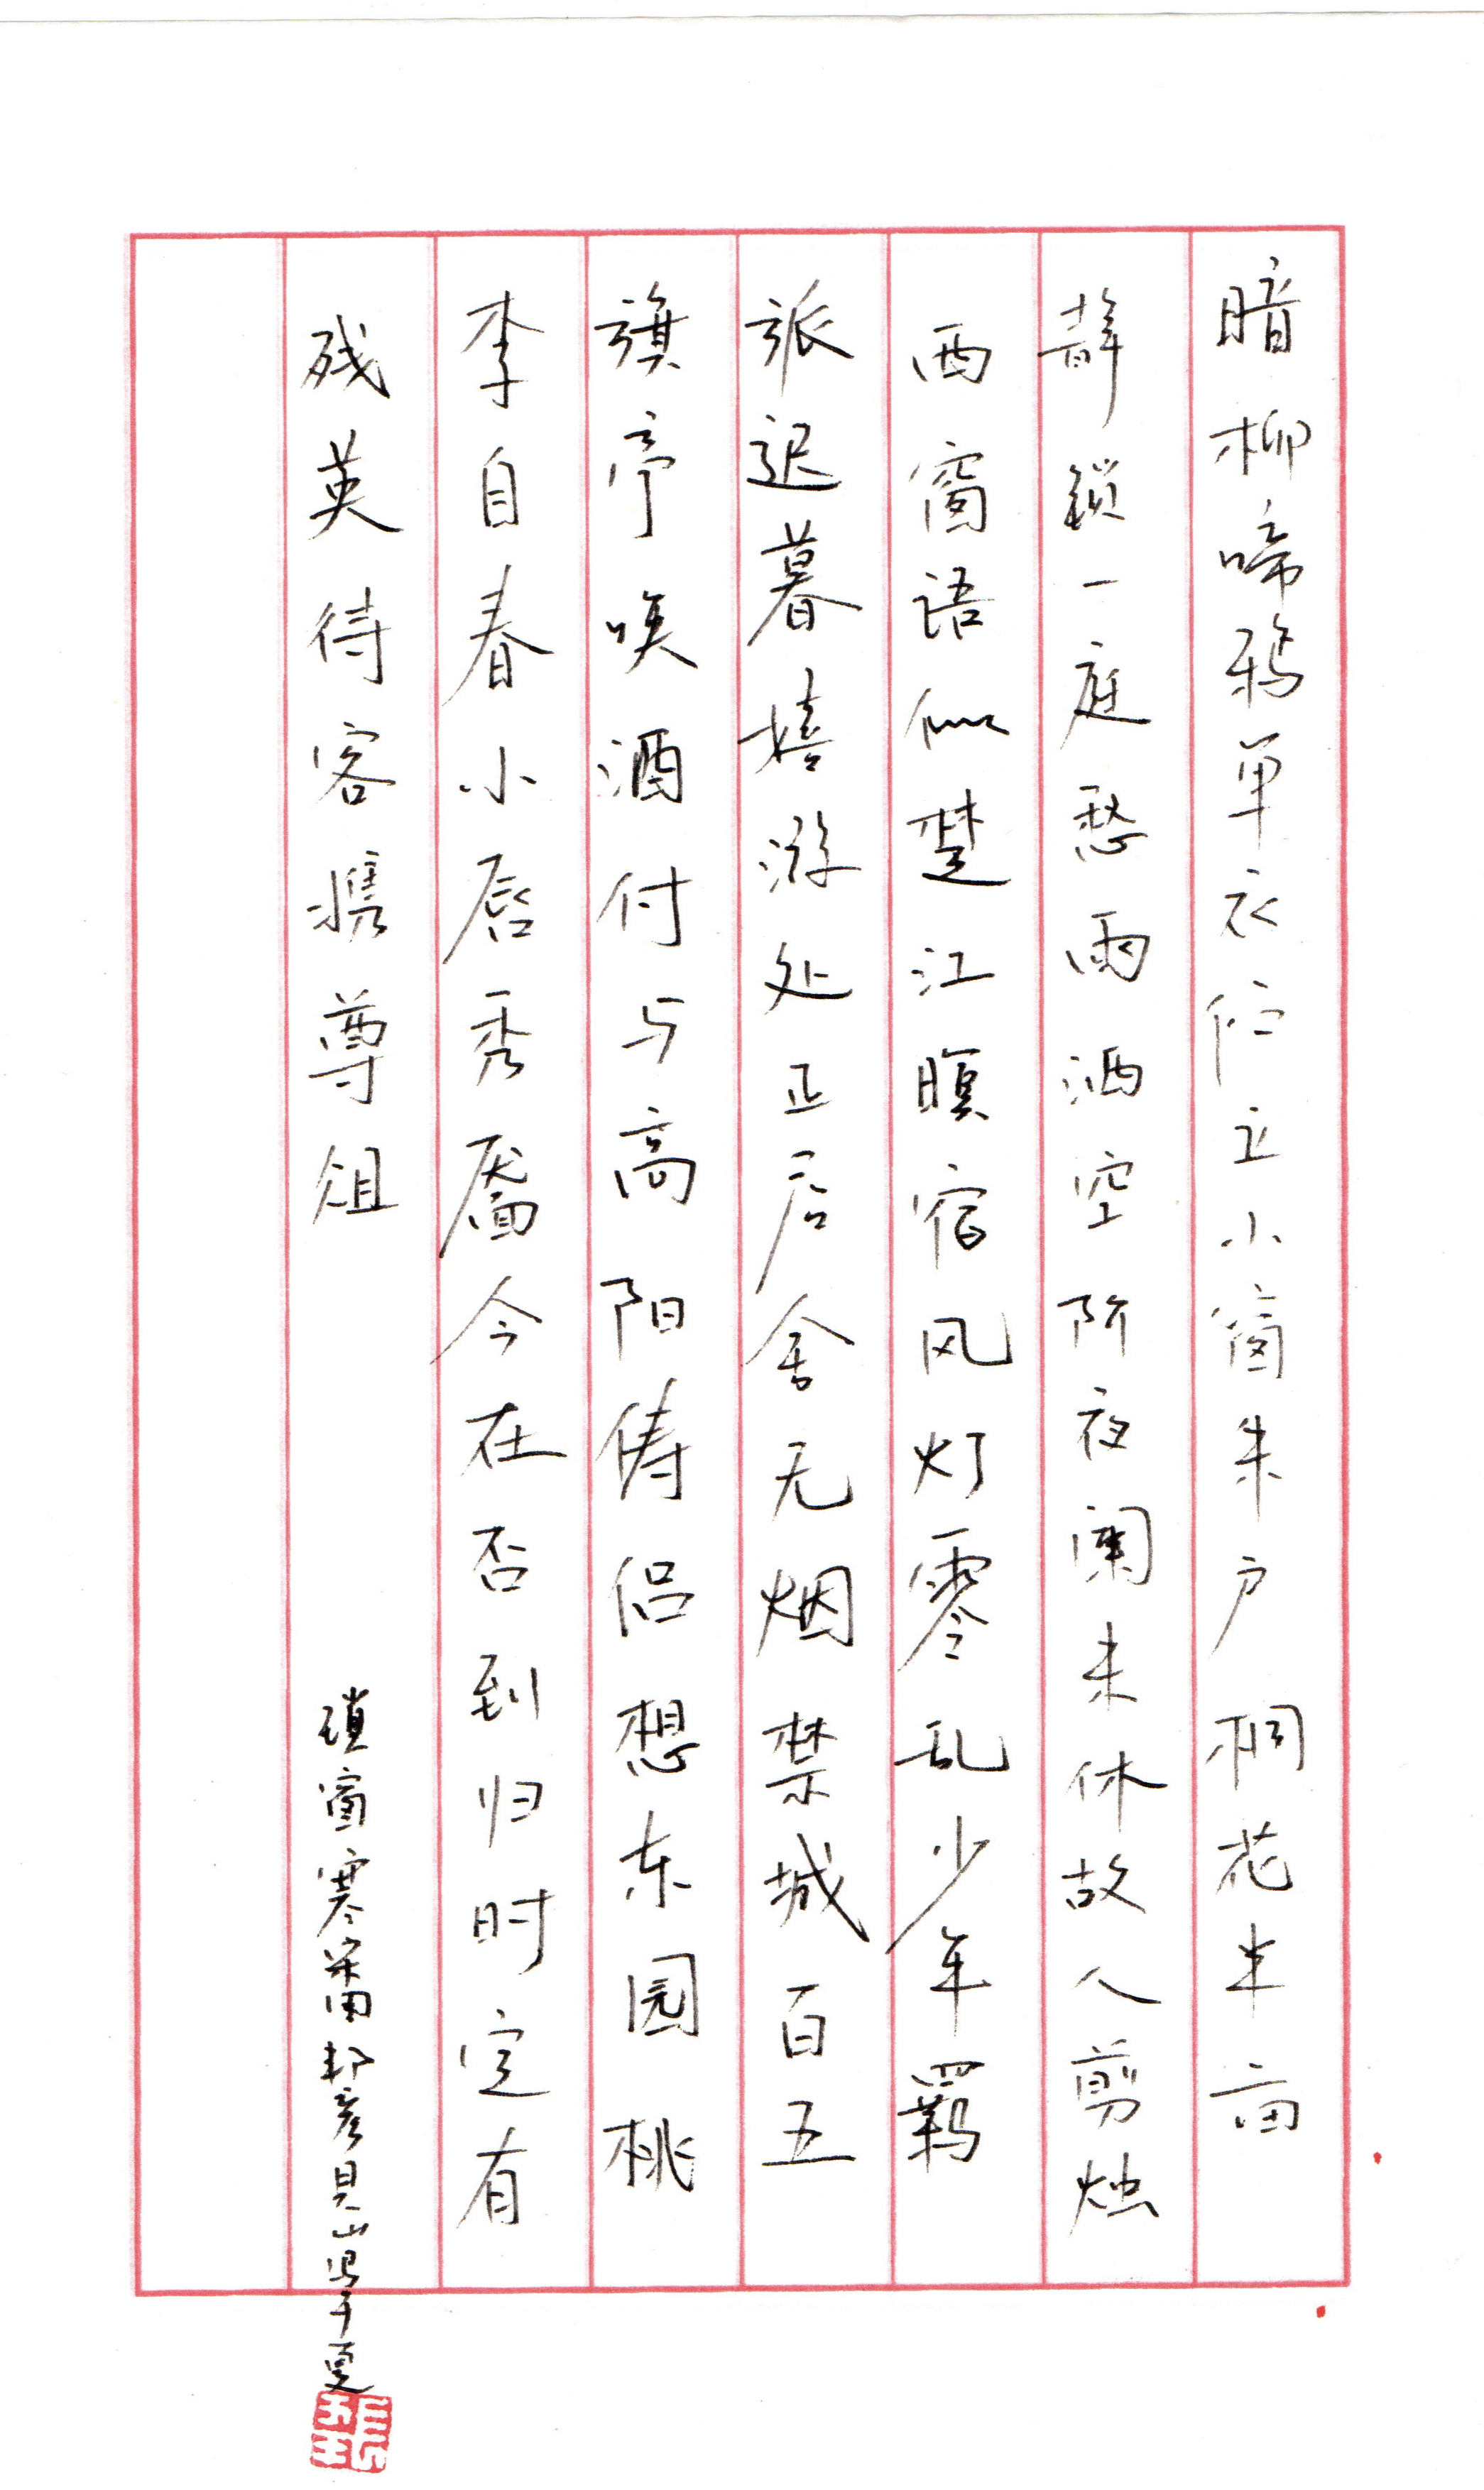 暗柳啼鸦单衣伫立小窗朱户桐花半亩
静锁一庭愁雨洒空阶夜阑未休故人剪烛
西窗语似楚江暝宿风灯零乱少年羁
旅迟暮嬉游处正店舍无烟禁城百五
旗亭唤酒付与高阳俦侣想东园桃
李自春小唇秀靥今在否到归时定有
残英待客携尊俎
锁窗寒 周邦彦 见山